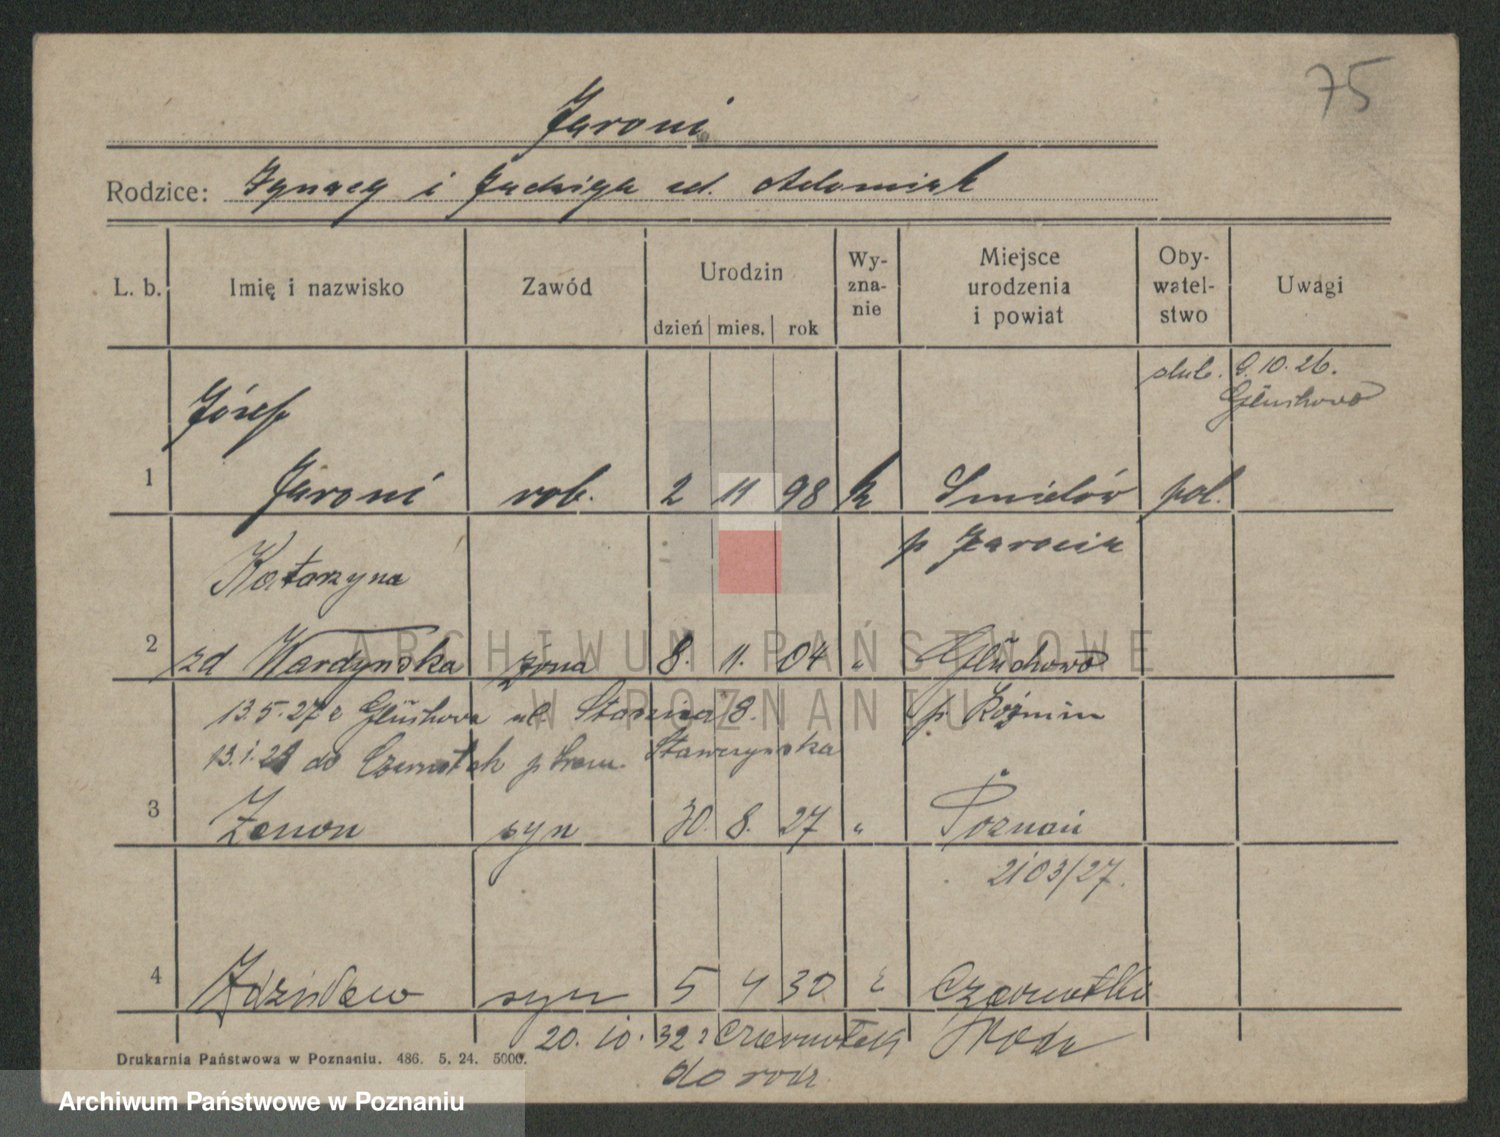 75
Jaroni
Rodzice: Ignacy i Jadwiga zd. Adamiak
L. b. Imię i nazwisko Zawód Urodzin dzień mies. rok Wy-zna-nie Miejsce urodzenia i powiat Oby-watel-stwo Uwagi
ślub. 9.10.26.
Głuchowo
Józef
1 Jaroni rob. 2 11 98 k Smiełów pol.
p Jarocin
Katarzyna
2 zd Wardzyńska żona 8. 11. 04 " Głuchowo
13.5.27 z Głuchowa ul. 8. p. Koźmin
13.1.28 do Czernotek p Śrem. Stawczyńska
3 Zenon syn 30. 8. 27 " Poznań
2103/27.
4 Zdzisław syn 5 4 30 Czarnotki
20. 10. 32 z Czarnotek Środa
do rodz
Drukarnia Państwowa w Poznaniu. 486. 5. 24. 5000.
ARCHIWUM PAŃSTWOWE
W POZNANIU
Archiwum Państwowe w Poznaniu